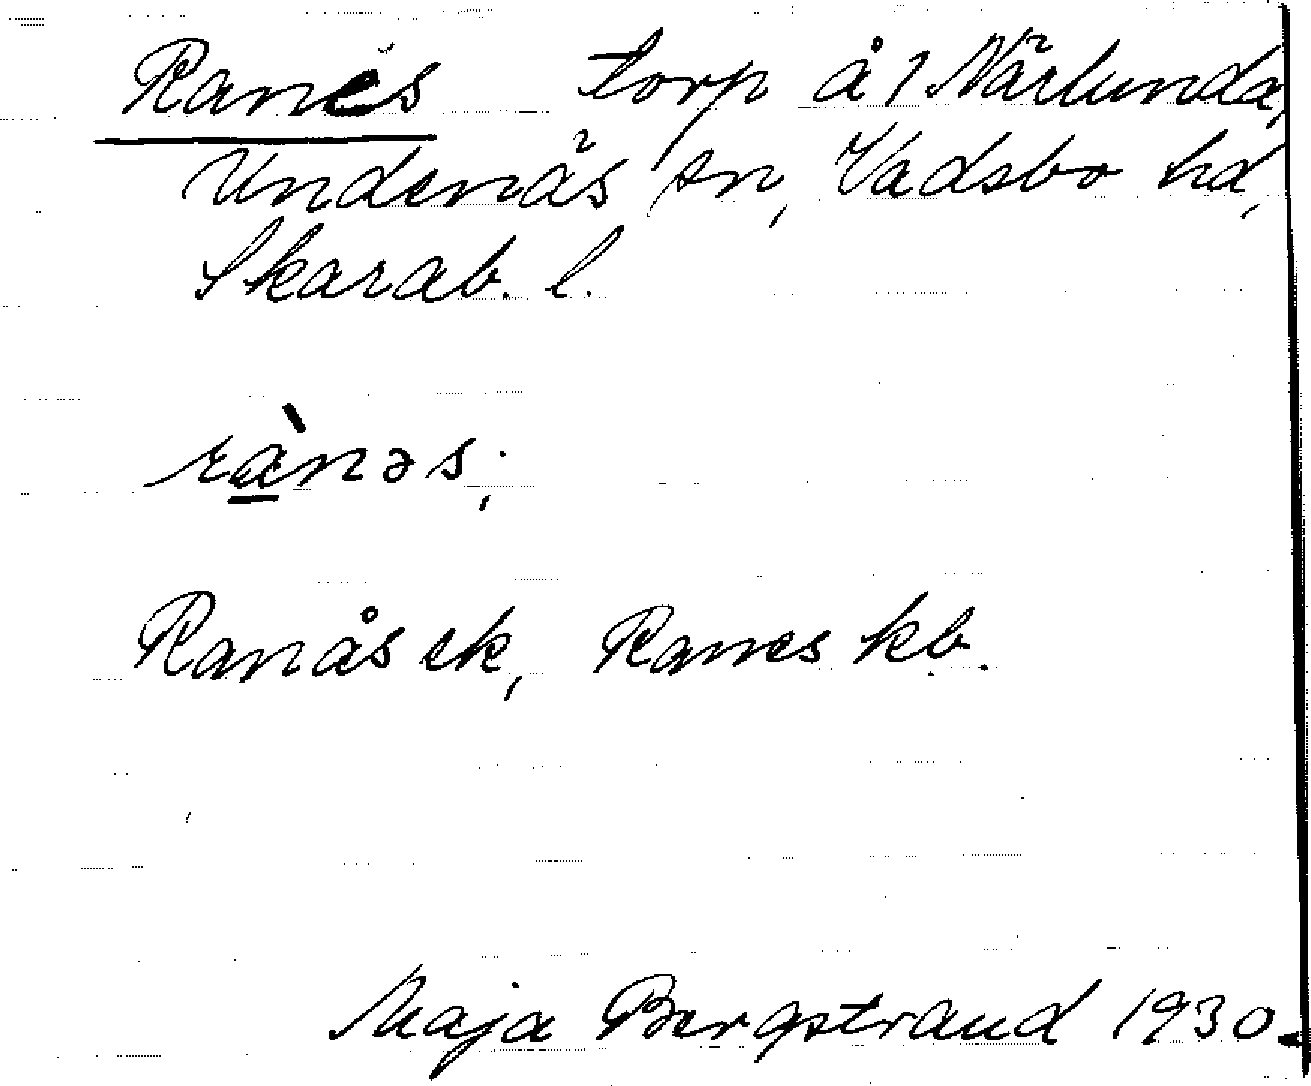 Ranes torp å 1 Närlunda,
Undenäs sn, Vadsbo hd,
Skarab. l.
rànəs;
Ranås ek, Ranes kb.
Maja Bergstrand 1930.